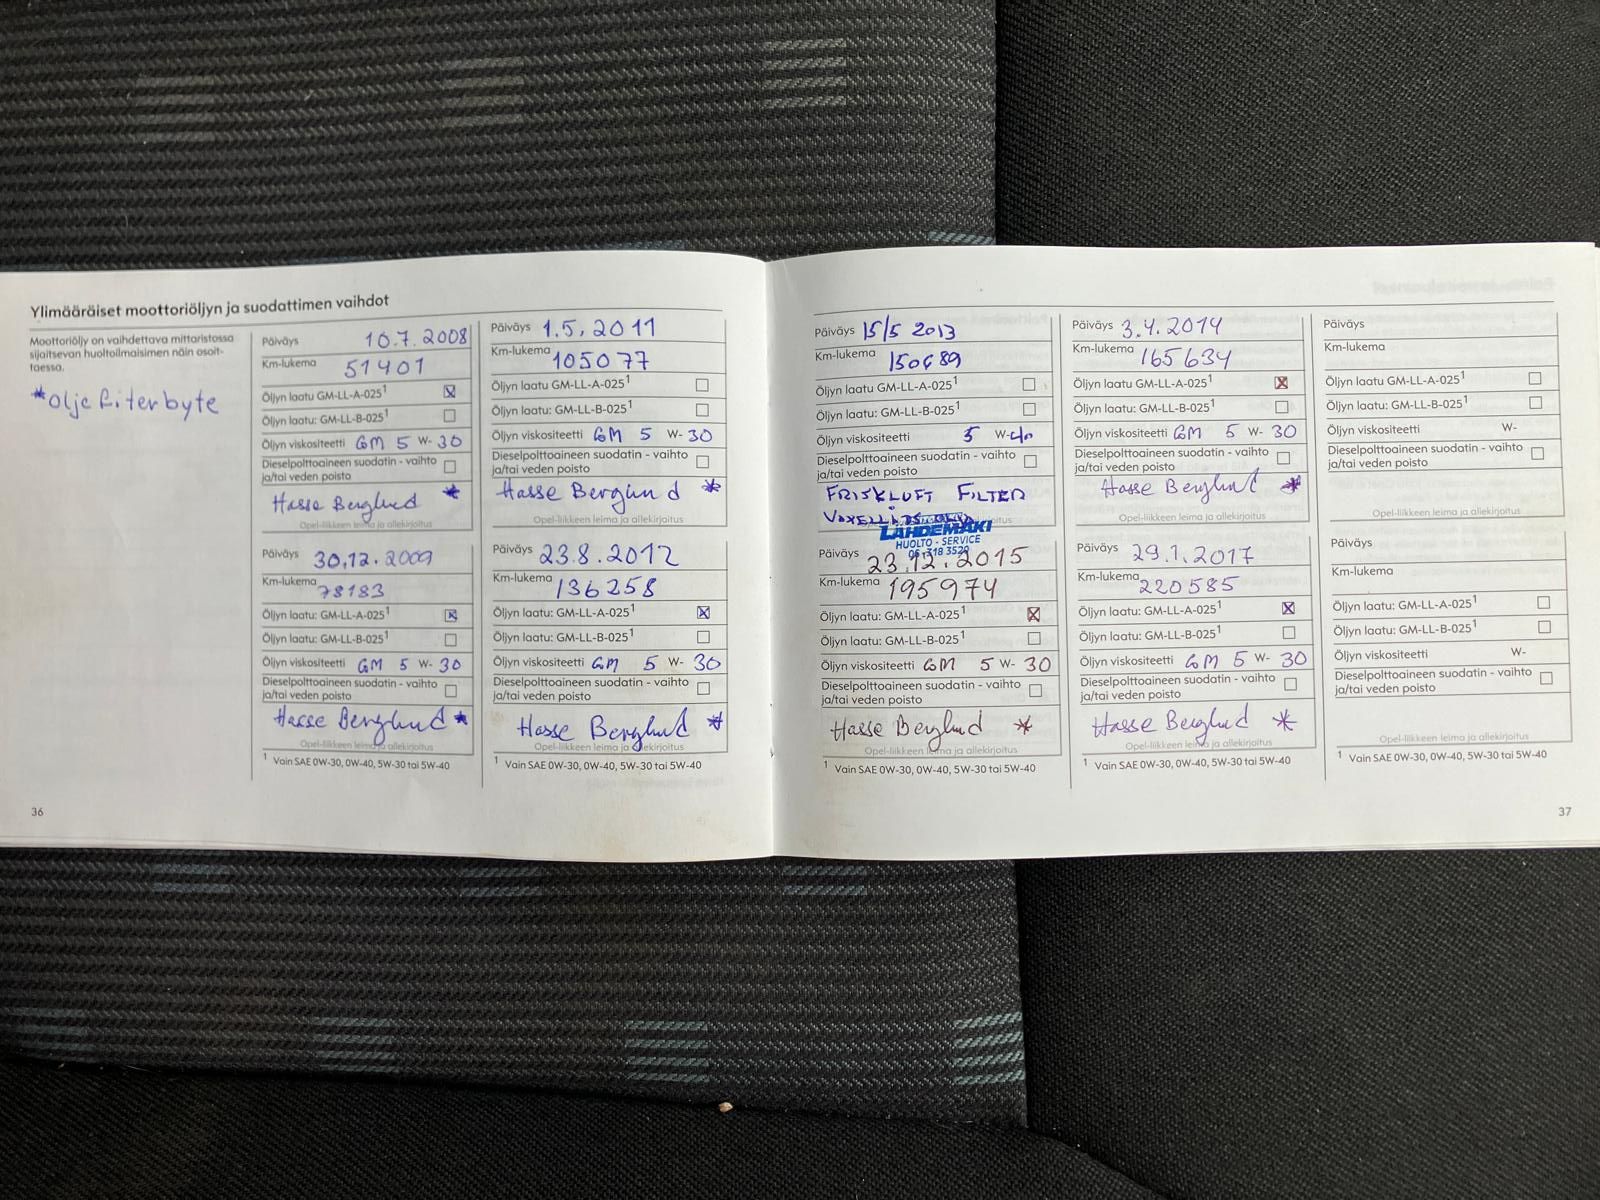 Ylimääräiset moottoriöljyn ja suodattimen vaihdot
Moottoriöljy on vaihdettava mittaristossa
sijaitsevan huoltoilmaisimen näin osoit-
taessa.
*olje fiterbyte
Päiväys 10.7.2008
Km-lukema 51401
Öljyn laatu GM-LL-A-025¹ ☒
Öljyn laatu: GM-LL-B-025¹ ☐
Öljyn viskositeetti GM 5 W- 30
Dieselpolttoaineen suodatin - vaihto
ja/tai veden poisto ☐
Hasse Berglund *
Opel-liikkeen leima ja allekirjoitus
Päiväys 30.12.2009
Km-lukema 78183
Öljyn laatu: GM-LL-A-025¹ ☒
Öljyn laatu: GM-LL-B-025¹ ☐
Öljyn viskositeetti GM 5 W- 30
Dieselpolttoaineen suodatin - vaihto
ja/tai veden poisto ☐
Hasse Berglund *
Opel-liikkeen leima ja allekirjoitus
¹ Vain SAE 0W-30, 0W-40, 5W-30 tai 5W-40
Päiväys 1.5.2011
Km-lukema 105077
Öljyn laatu GM-LL-A-025¹ ☐
Öljyn laatu: GM-LL-B-025¹ ☐
Öljyn viskositeetti GM 5 W- 30
Dieselpolttoaineen suodatin - vaihto
ja/tai veden poisto ☐
Hasse Berglund *
Opel-liikkeen leima ja allekirjoitus
Päiväys 23.8.2012
Km-lukema 136258
Öljyn laatu: GM-LL-A-025¹ ☒
Öljyn laatu: GM-LL-B-025¹ ☐
Öljyn viskositeetti GM 5 W- 30
Dieselpolttoaineen suodatin - vaihto
ja/tai veden poisto ☐
Hasse Berglund *
Opel-liikkeen leima ja allekirjoitus
¹ Vain SAE 0W-30, 0W-40, 5W-30 tai 5W-40
36
Päiväys 15/5 2013
Km-lukema
Öljyn laatu GM-LL-A-025¹ ☐
Öljyn laatu: GM-LL-B-025¹ ☐
Öljyn viskositeetti 5 W-
Dieselpolttoaineen suodatin - vaihto
ja/tai veden poisto ☐
FRISKLUFT FILTER
LÄHDEMÄKI
HUOLTO - SERVICE
06-318 3529
Päiväys 23.12.2015
Km-lukema 195974
Öljyn laatu: GM-LL-A-025¹ ☒
Öljyn laatu: GM-LL-B-025¹ ☐
Öljyn viskositeetti GM 5 W- 30
Dieselpolttoaineen suodatin - vaihto
ja/tai veden poisto ☐
Hasse Berglund *
Opel-liikkeen leima ja allekirjoitus
¹ Vain SAE 0W-30, 0W-40, 5W-30 tai 5W-40
Päiväys 3.4.2014
Km-lukema 165634
Öljyn laatu GM-LL-A-025¹ ☒
Öljyn laatu: GM-LL-B-025¹ ☐
Öljyn viskositeetti GM 5 W- 30
Dieselpolttoaineen suodatin - vaihto
ja/tai veden poisto ☐
Hasse Berglund *
Opel-liikkeen leima ja allekirjoitus
Päiväys 29.1.2017
Km-lukema 220585
Öljyn laatu: GM-LL-A-025¹ ☒
Öljyn laatu: GM-LL-B-025¹ ☐
Öljyn viskositeetti GM 5 W- 30
Dieselpolttoaineen suodatin - vaihto
ja/tai veden poisto ☐
Hasse Berglund *
Opel-liikkeen leima ja allekirjoitus
¹ Vain SAE 0W-30, 0W-40, 5W-30 tai 5W-40
Päiväys
Km-lukema
Öljyn laatu GM-LL-A-025¹ ☐
Öljyn laatu: GM-LL-B-025¹ ☐
Öljyn viskositeetti W-
Dieselpolttoaineen suodatin - vaihto
ja/tai veden poisto ☐
Opel-liikkeen leima ja allekirjoitus
Päiväys
Km-lukema
Öljyn laatu: GM-LL-A-025¹ ☐
Öljyn laatu: GM-LL-B-025¹ ☐
Öljyn viskositeetti W-
Dieselpolttoaineen suodatin - vaihto
ja/tai veden poisto ☐
Opel-liikkeen leima ja allekirjoitus
¹ Vain SAE 0W-30, 0W-40, 5W-30 tai 5W-40
37